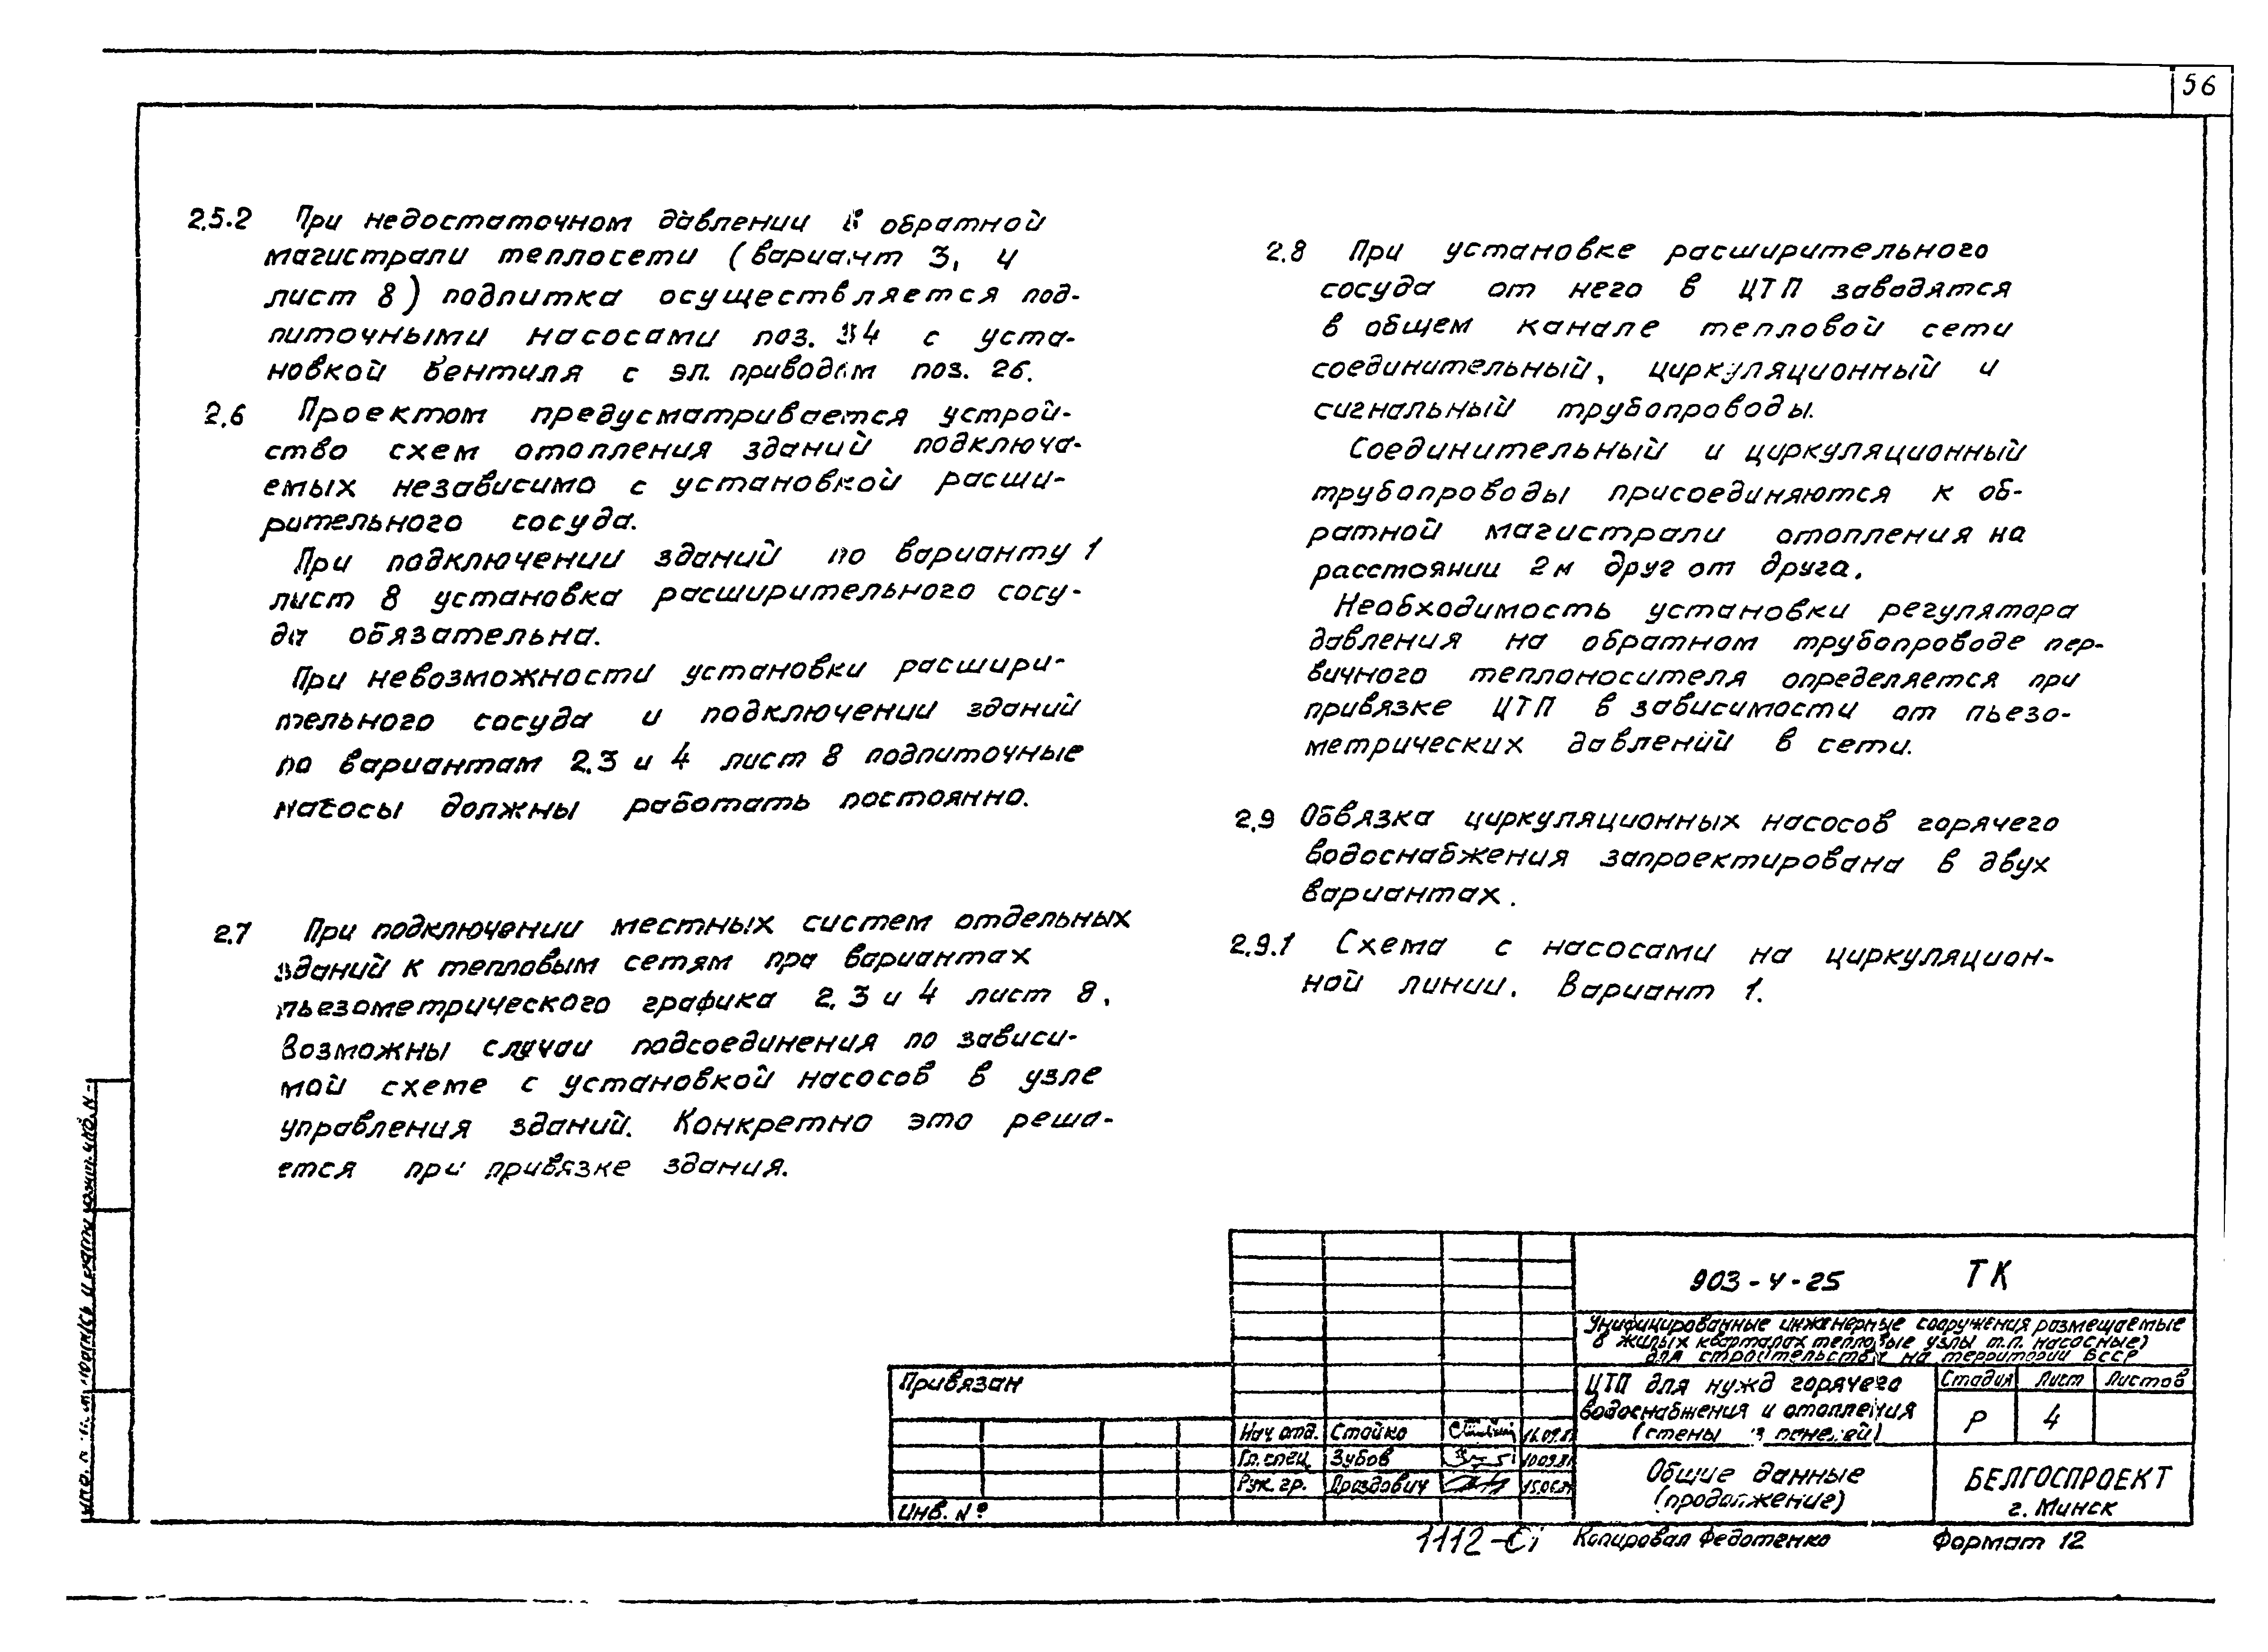 56
2.5.2 При недостаточном давлении в обратной
магистрали теплосети (вариант 3, 4
лист 8) подпитка осуществляется под-
питочными насосами поз. 34 с уста-
новкой вентиля с эл. приводом поз. 26.
2.6 Проектом предусматривается устрой-
ство схем отопления зданий подключа-
емых независимо с установкой расши-
рительного сосуда.
При подключении зданий по варианту 1
лист 8 установка расширительного сосу-
да обязательна.
При невозможности установки расшири-
тельного сосуда и подключении зданий
по вариантам 2.3 и 4 лист 8 подпиточные
насосы должны работать постоянно.
2.7 При подключении местных систем отдельных
зданий к тепловым сетям при вариантах
пьезометрического графика 2, 3 и 4 лист 8,
возможны случаи подсоединения по зависи-
мой схеме с установкой насосов в узле
управления зданий. Конкретно это реша-
ется при привязке здания.
2.8 При установке расширительного
сосуда от него в ЦТП заводятся
в общем канале тепловой сети
соединительный, циркуляционный и
сигнальный трубопроводы.
Соединительный и циркуляционный
трубопроводы присоединяются к об-
ратной магистрали отопления на
расстоянии 2м друг от друга.
Необходимость установки регулятора
давления на обратном трубопроводе пер-
вичного теплоносителя определяется при
привязке ЦТП в зависимости от пьезо-
метрических давлений в сети.
2.9 Обвязка циркуляционных насосов горячего
водоснабжения запроектирована в двух
вариантах.
2.9.1 Схема с насосами на циркуляцион-
ной линии. Вариант 1.
903-4-25 ТК
Унифицированные инженерные сооружения размещаемые
в жилых кварталах тепловые узлы т.п. насосные)
для строительства на территории БССР
ЦТП для нужд горячего
водоснабжения и отопления
(стены из панелей)
Стадия Лист Листов
Р 4
Общие данные
(продолжение)
БЕЛГОСПРОЕКТ
г. Минск
Привязан
Инв. №
Нач отд. Стойко
Гл. спец Зубов
Рук. гр. Драздович
1112
Копировал Федотенко
Формат 12